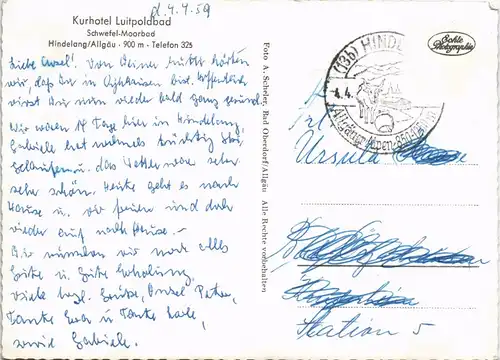 d. 4.4.59
Kurhotel Luitpoldbad
Schwefel-Moorbad
Hindelang/Allgäu · 900 m - Telefon 325
Liebe Ursel! Von Deiner Mutter hörten
wir, daß Du in bist. Hoffentlich
wirst Du nun wieder bald ganz gesund.
Wir waren 14 Tage hier in Hindelang,
Gabriele hat nochmals tüchtig Ski
gelaufen u. das Wetter war sehr
sehr schön. Heute geht es nach
Hause u. wir freuen uns doch
wieder auf nach Hause. -
Wir wünschen Dir noch alles
Gute u. gute Erholung,
viele herzl. Grüße, Onkel Peter,
Tante u. Tante
sowie Gabriele.
Foto A. Scheler, Bad Oberdorf/Allgäu Alle Rechte vorbehalten
Echte
Photographie
(13b) HINDEL
4.4.
Allgäuer Alpen 850
Ursula
Station 5